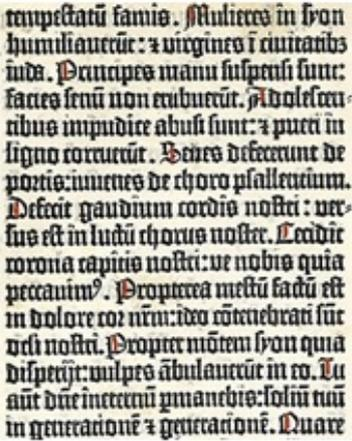 tempestatū famis. Mulieres in syon
humiliauerūt: ⁊ virgines ī ciuitatibꝫ
iuda. Principes manu suspensi sunt:
facies senū non erubuerūt. Adolescen-
tibus impudice abusi sunt: ⁊ pueri in
ligno corruerūt. Senes defecerunt de
portis: iuuenes de choro psallentium.
Defecit gaudium cordis nostri: ver-
sus est in luctū chorus noster. Cecidit
corona capitis nostri: ve nobis quia
peccauimꝰ. Propterea mestū factū est
in dolore cor nr̄m: ideo cōtenebrati sūt
oc̄li nostri. Propter mōtem syon quia
disperijt: vulpes ābulauerūt in eo. Tu
aūt dn̄e ineternū ꝑmanebis: soliū tuū
in generationē ⁊ generationē. Quare